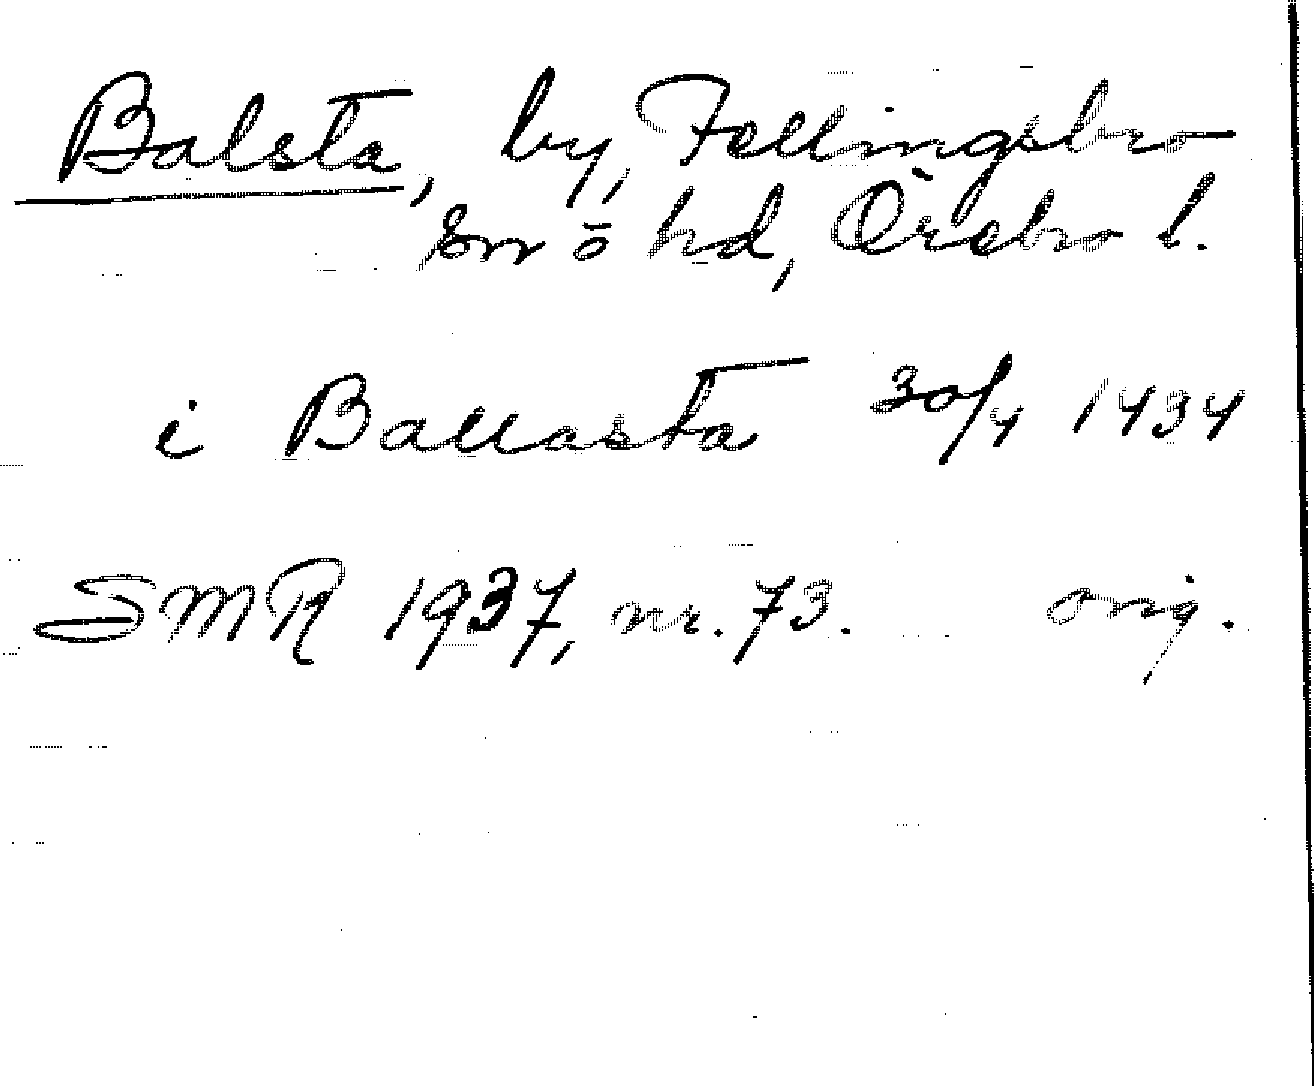 Balsta, by, Fellingsbro
sn ō hd, Örebro l.
i Ballasta 30/4 1434
SMR 1937, nr. 73. orig.